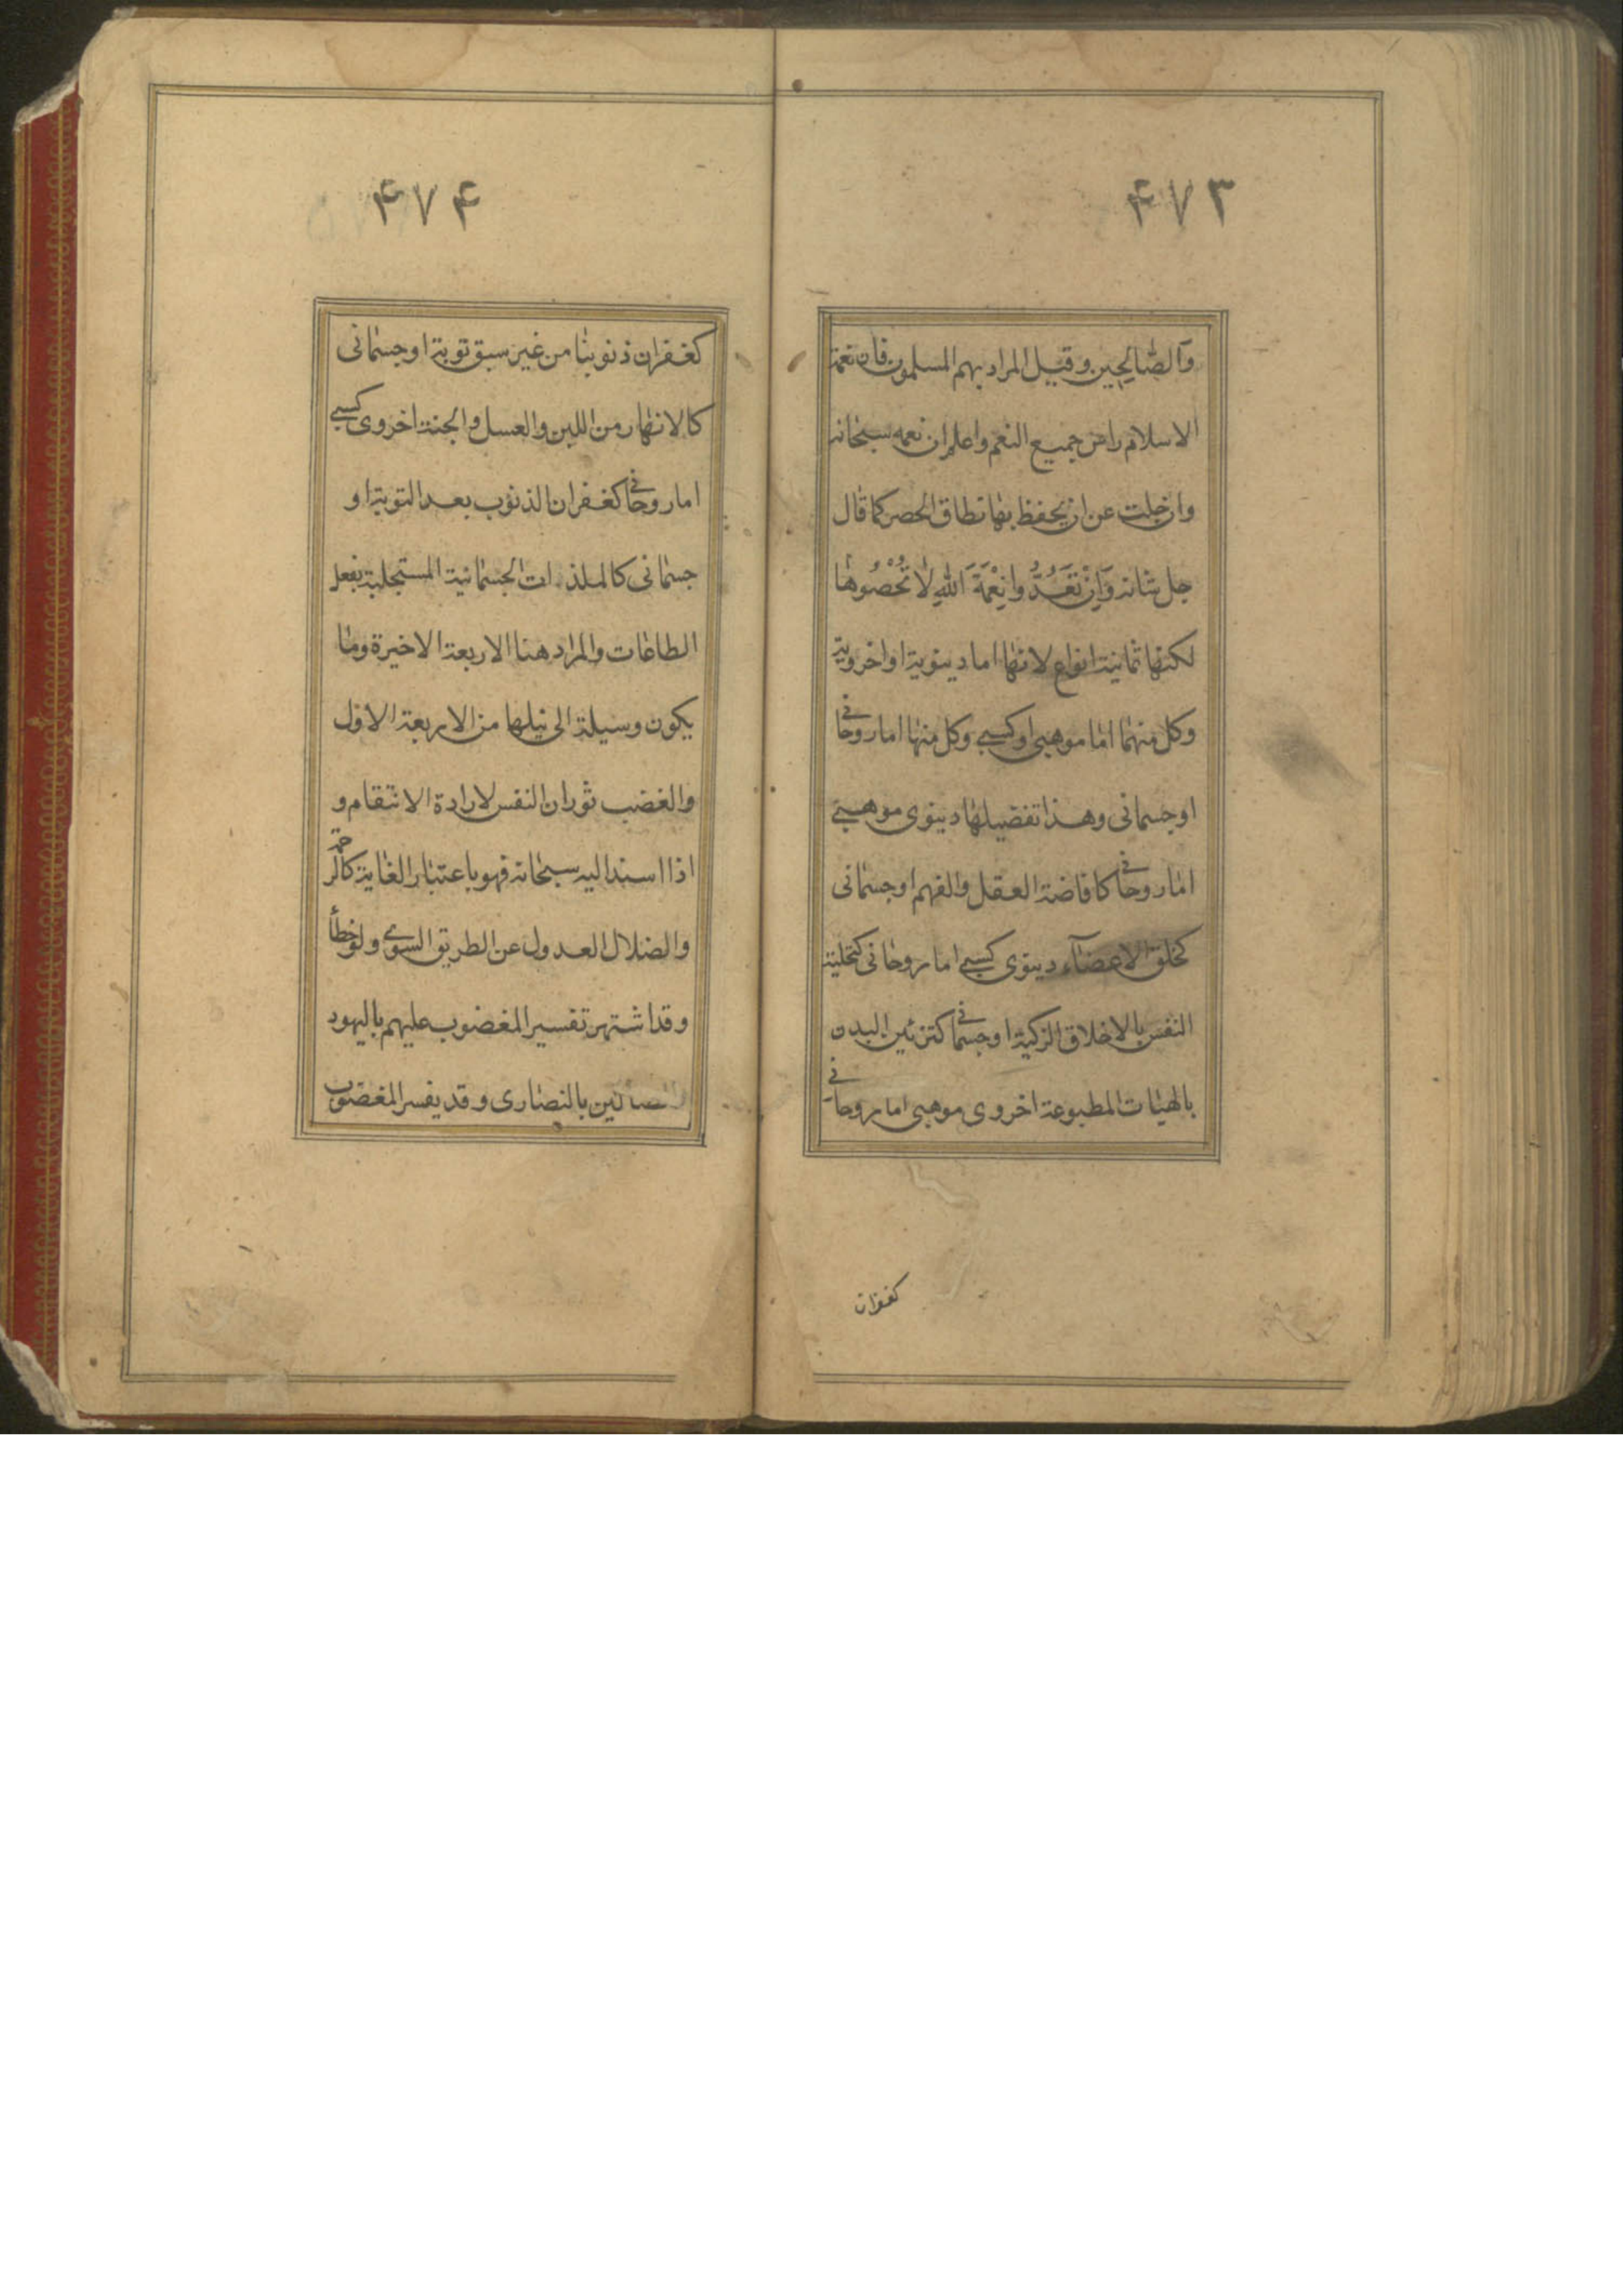 ۴۷۳
وَالصّٰالِحِين وقيل المراد بهم المسلمون فان نعمة
الاسلام راس جميع النعم واعلم ان نعمه سبحانه
وان جلت عن ان يحفظ بها نطاق الحصر كما قال
جل شانه وَاِنْ تَعُدُّوا نِعْمَةَ اللّٰهِ لاٰ تُحْصُوهٰا
لكنها ثمانية انواع لانها اما دينوية او اخروية
وكل منهما اما موهبى او كسبى وكل منها اما روحانى
او جسمانى وهذا تفصيلها دينوى موهبى
اما روحانى كافاضة العقل والفهم او جسمانى
كخلق الاعضآء دينوى كسبى اما روحانى كتحلية
النفس بالاخلاق الزكية او جسمانى كتزئين البدن
بالهيئات المطبوعة اخروى موهبى اما روحانى
كغفران
۴۷۴
كغفران ذنوبنا من غير سبق توبة او جسمانى
كالانهار من اللبن والعسل والجنة اخروى كسبى
اما روحانى كغفران الذنوب بعد التوبة او
جسمانى كالملذات الجسمانية المستجلبة بفعل
الطاعات والمراد هنا الاربعة الاخيرة وما
يكون وسيلة الى نيلها من الاربعة الاول
والغضب ثوران النفس لارادة الانتقام و
اذا اسند اليه سبحانه فهو باعتبار الغاية كالرحمة
والضلال العدول عن الطريق السوى ولو خطأ
وقد اشتهر تفسير المغضوب عليهم باليهود
والضالين بالنصارى وقد يفسر المغضوب